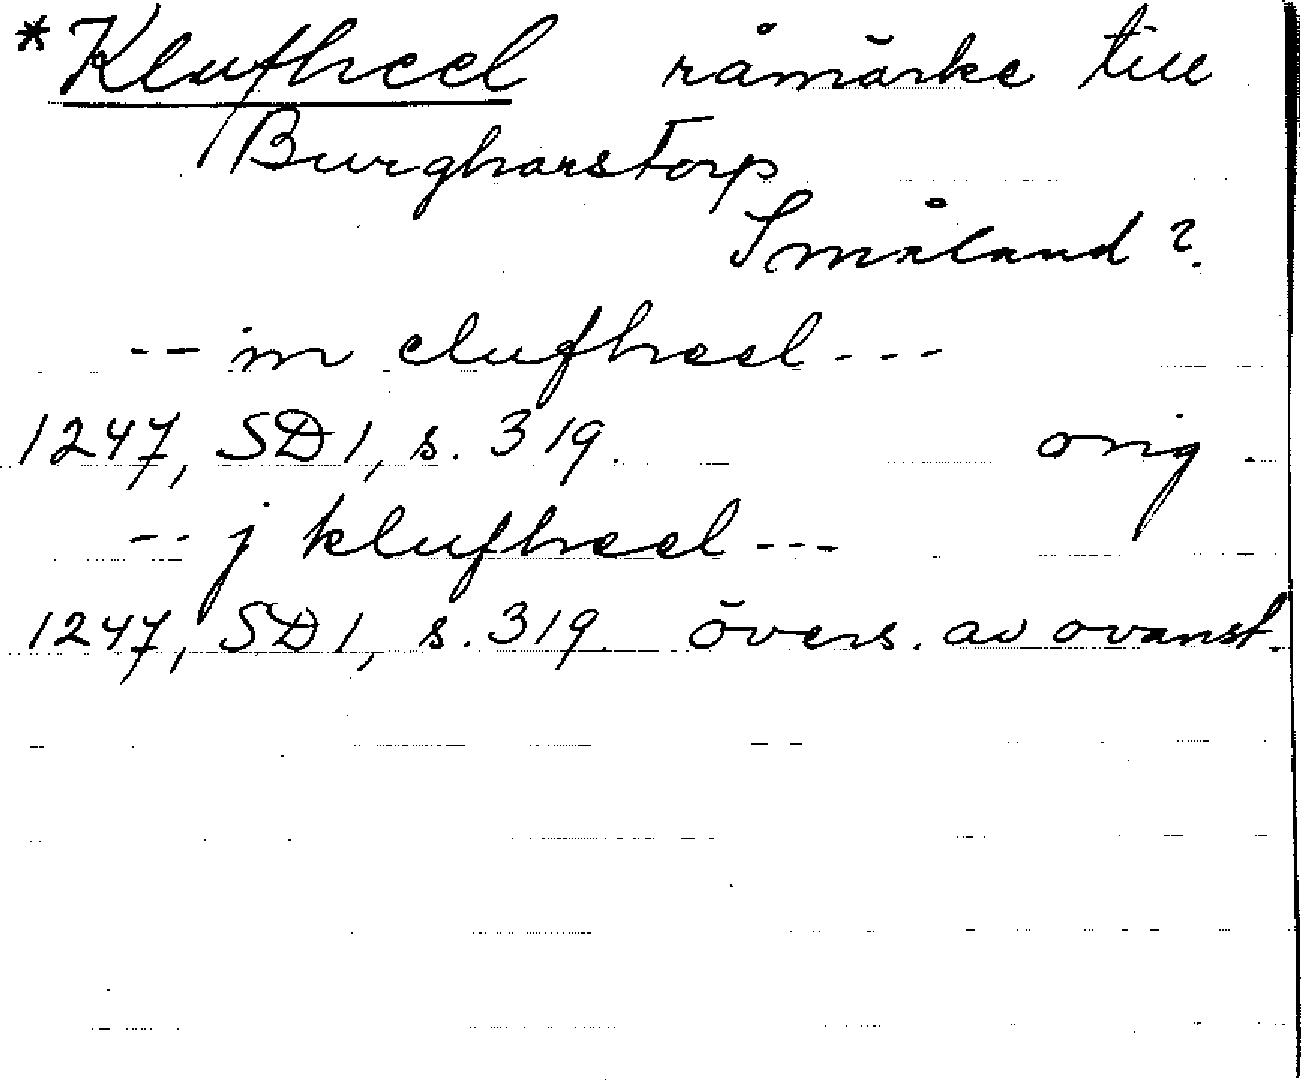 *Klufheel råmärke till
Burgharstorp
Småland?
-- in clufheel ---
1247, SD1, s. 319. orig.
-- j klufheel ---
1247, SD1, s. 319. övers. av ovanst.